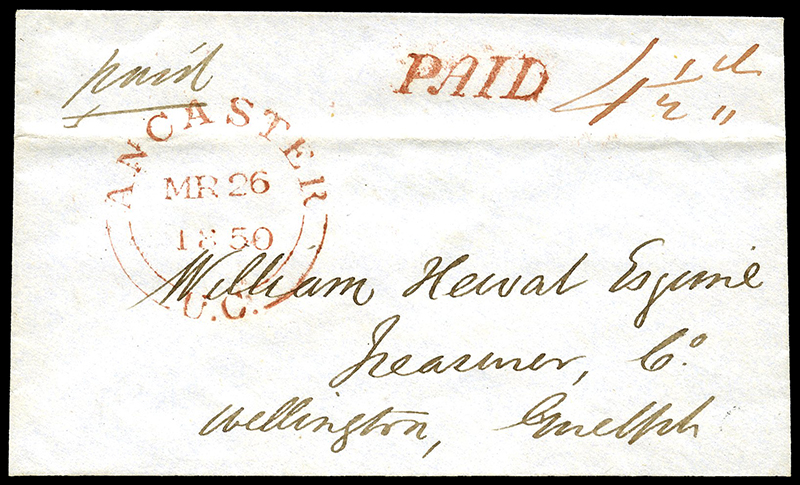 paid
PAID 4½d"
ANCASTER
MR 26
1850
U.C.
William Hewat Esquire
Treasurer, Co.
Wellington, Guelph